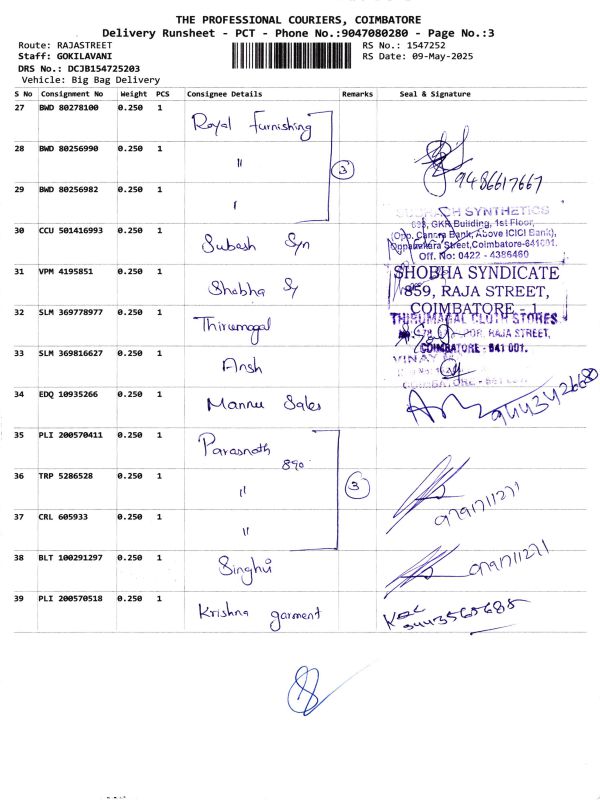 THE PROFESSIONAL COURIERS, COIMBATORE
Delivery Runsheet - PCT - Phone No.:9047080280 - Page No.:3
Route: RAJASTREET
RS No.: 1547252
Staff: GOKILAVANI
RS Date: 09-May-2025
DRS No.: DCJB154725203
Vehicle: Big Bag Delivery
S No Consignment No Weight PCS Consignee Details Remarks Seal & Signature
27 BWD 80278100 0.250 1 Royal Furnishing
28 BWD 80256990 0.250 1 " 3
9486617667
29 BWD 80256982 0.250 1 "
SYNTHETICS
GKR Building, 1st Floor,
(Opp. Canara Bank, Above ICICI Bank),
Street, Coimbatore-641001.
Off. No: 0422 - 4386460
30 CCU 501416993 0.250 1 Subash Syn
31 VPM 4195851 0.250 1 Shobha Sy
SHOBHA SYNDICATE
859, RAJA STREET,
COIMBATORE - 1
32 SLM 369778977 0.250 1 Thirumagal
THIRUMAGAL CLOTH STORES
RAJA STREET,
COIMBATORE - 641 001.
33 SLM 369816627 0.250 1 Ansh
34 EDQ 10935266 0.250 1 Mannu Sales
9443426680
35 PLI 200570411 0.250 1 Parasnath
890
36 TRP 5286528 0.250 1 " 3
9791711271
37 CRL 605933 0.250 1 "
38 BLT 100291297 0.250 1 Singhvi
9791711271
39 PLI 200570518 0.250 1 Krishna garment